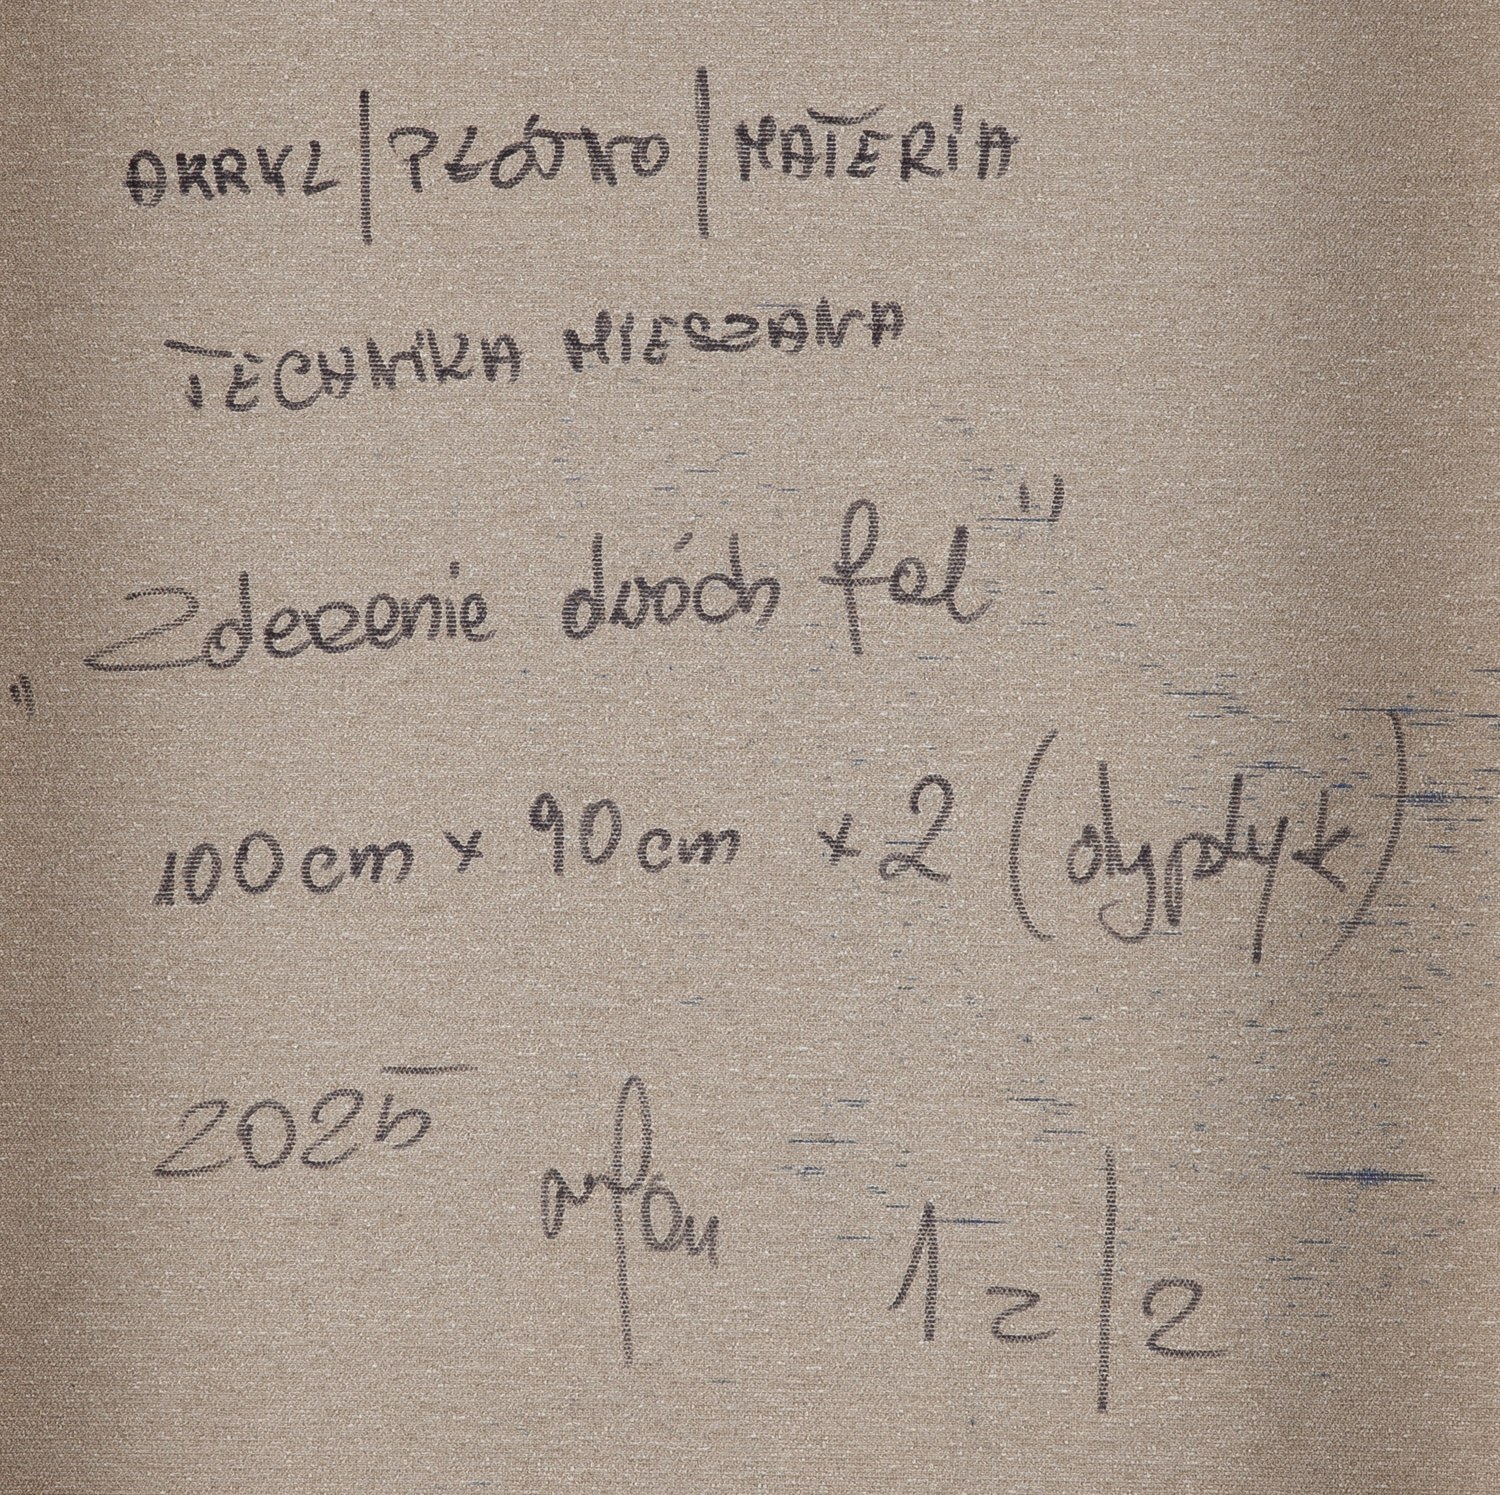 AKRYL | PŁÓTNO | MATERIA
TECHNIKA MIESZANA
"Zderzenie dwóch fal"
100cm x 90cm x 2 (dyptyk)
2025
1 z | 2